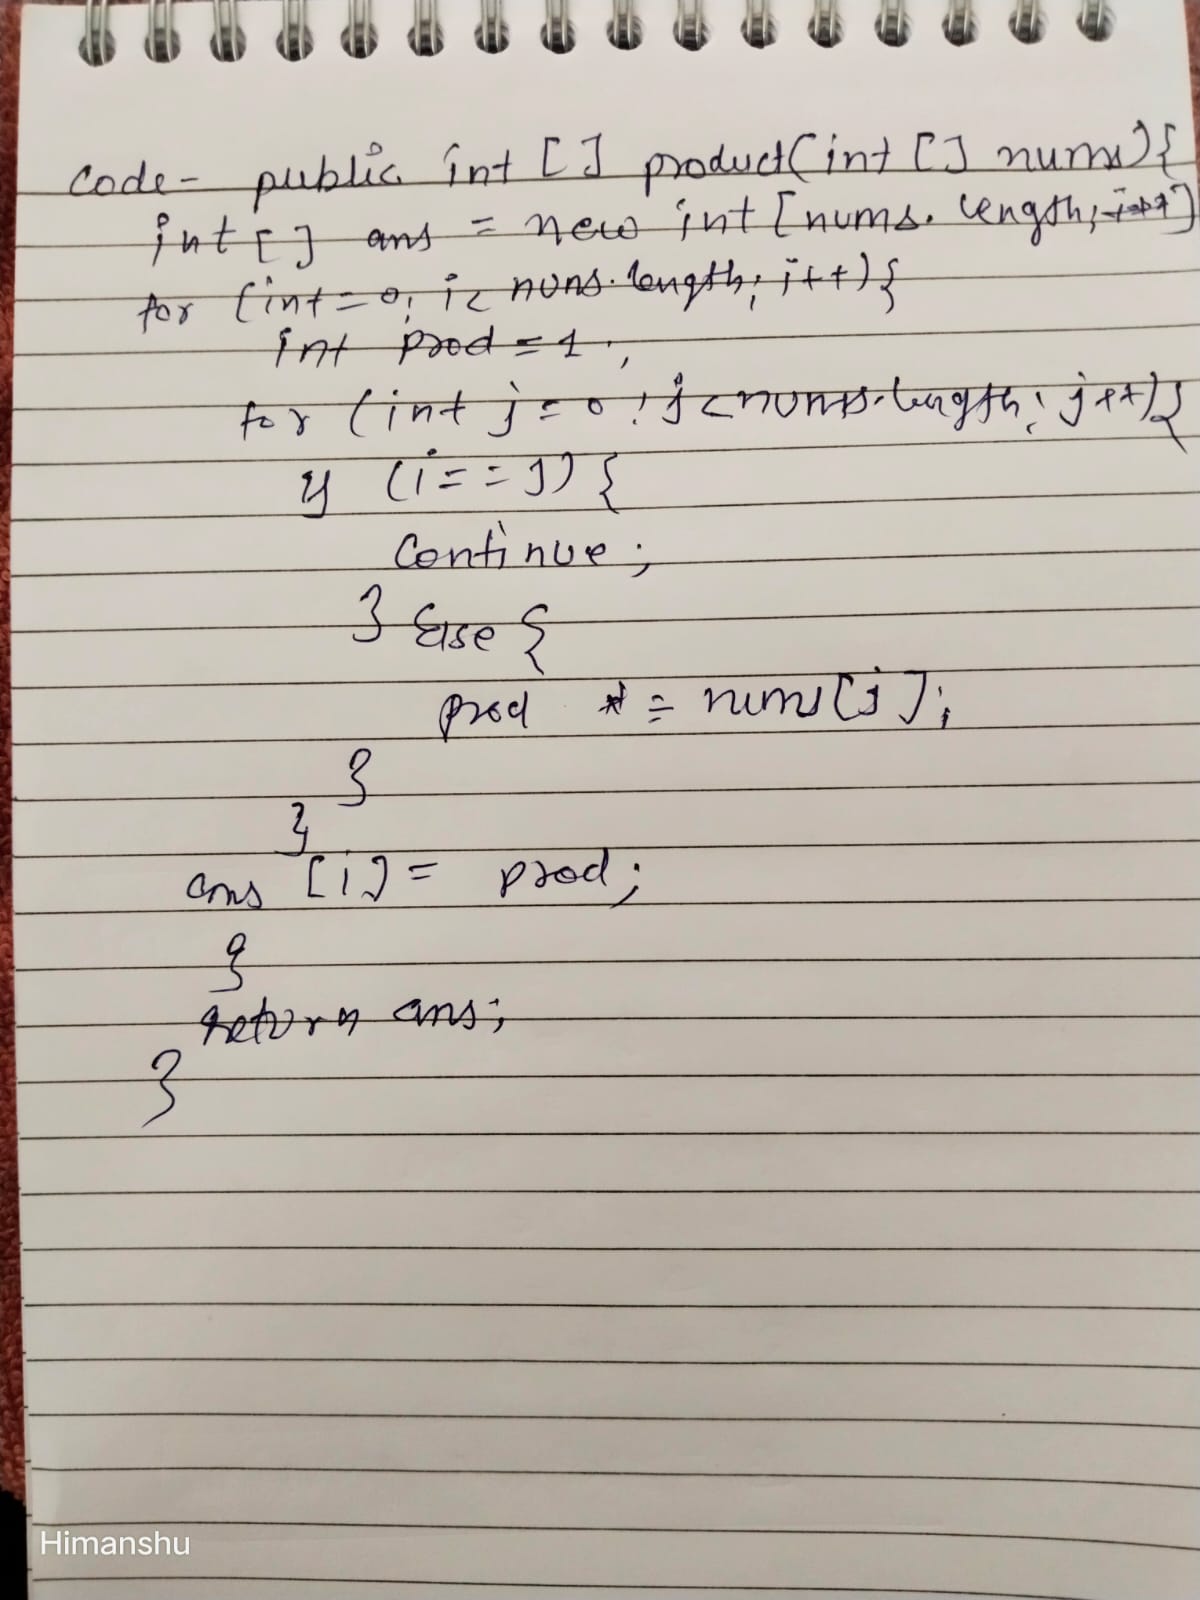 Code- public int [] product(int [] nums){
int [] ans = new int [nums.length; i++]
for (int=0; i< nums.length; i++){
int prod=1;
for (int j=0; j<nums.length; j++){
if (i==j){
Continue;
} Else {
prod *= nums[j];
}
}
ans [i]= prod;
}
return ans;
}
Himanshu